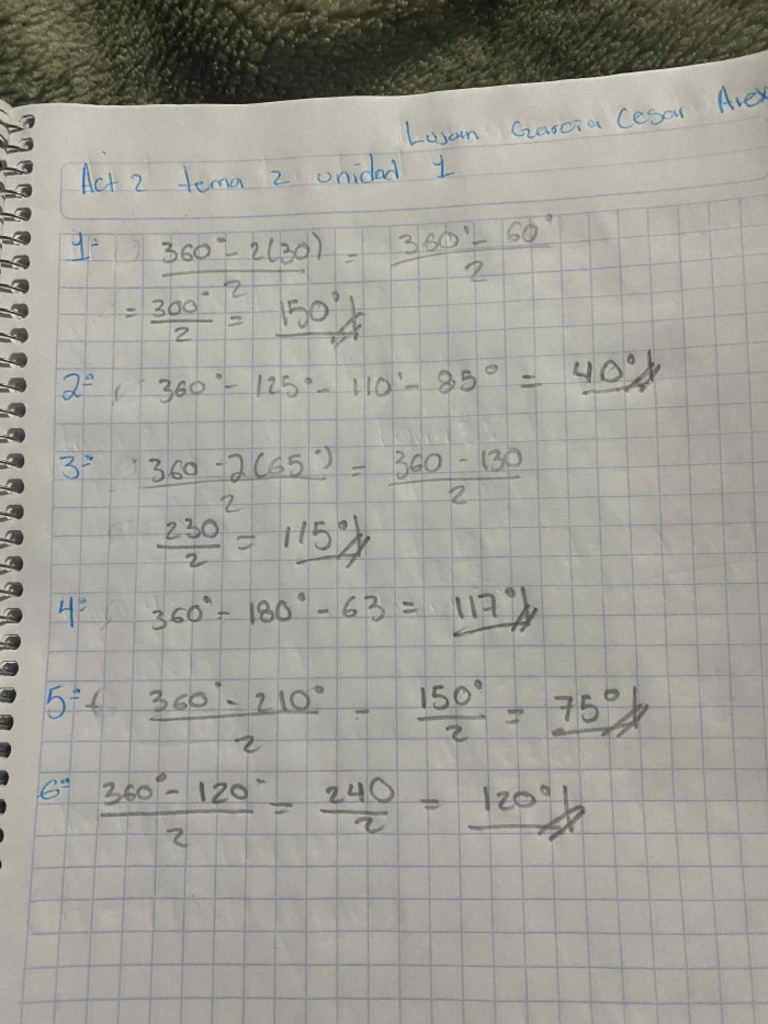 Lujan Garcia Cesar
Act 2 tema 2 unidad 1
1= (360° - 2(30))/2 = (360° - 60°)/2
= 300°/2 = 150°
2= 360° - 125° - 110° - 85° = 40°
3= (360 - 2(65°))/2 = (360 - 130)/2
230/2 = 115°
4= 360° - 180° - 63 = 117°
5= (360° - 210°)/2 - 150°/2 = 75°
6= (360° - 120°)/2 = 240/2 = 120°